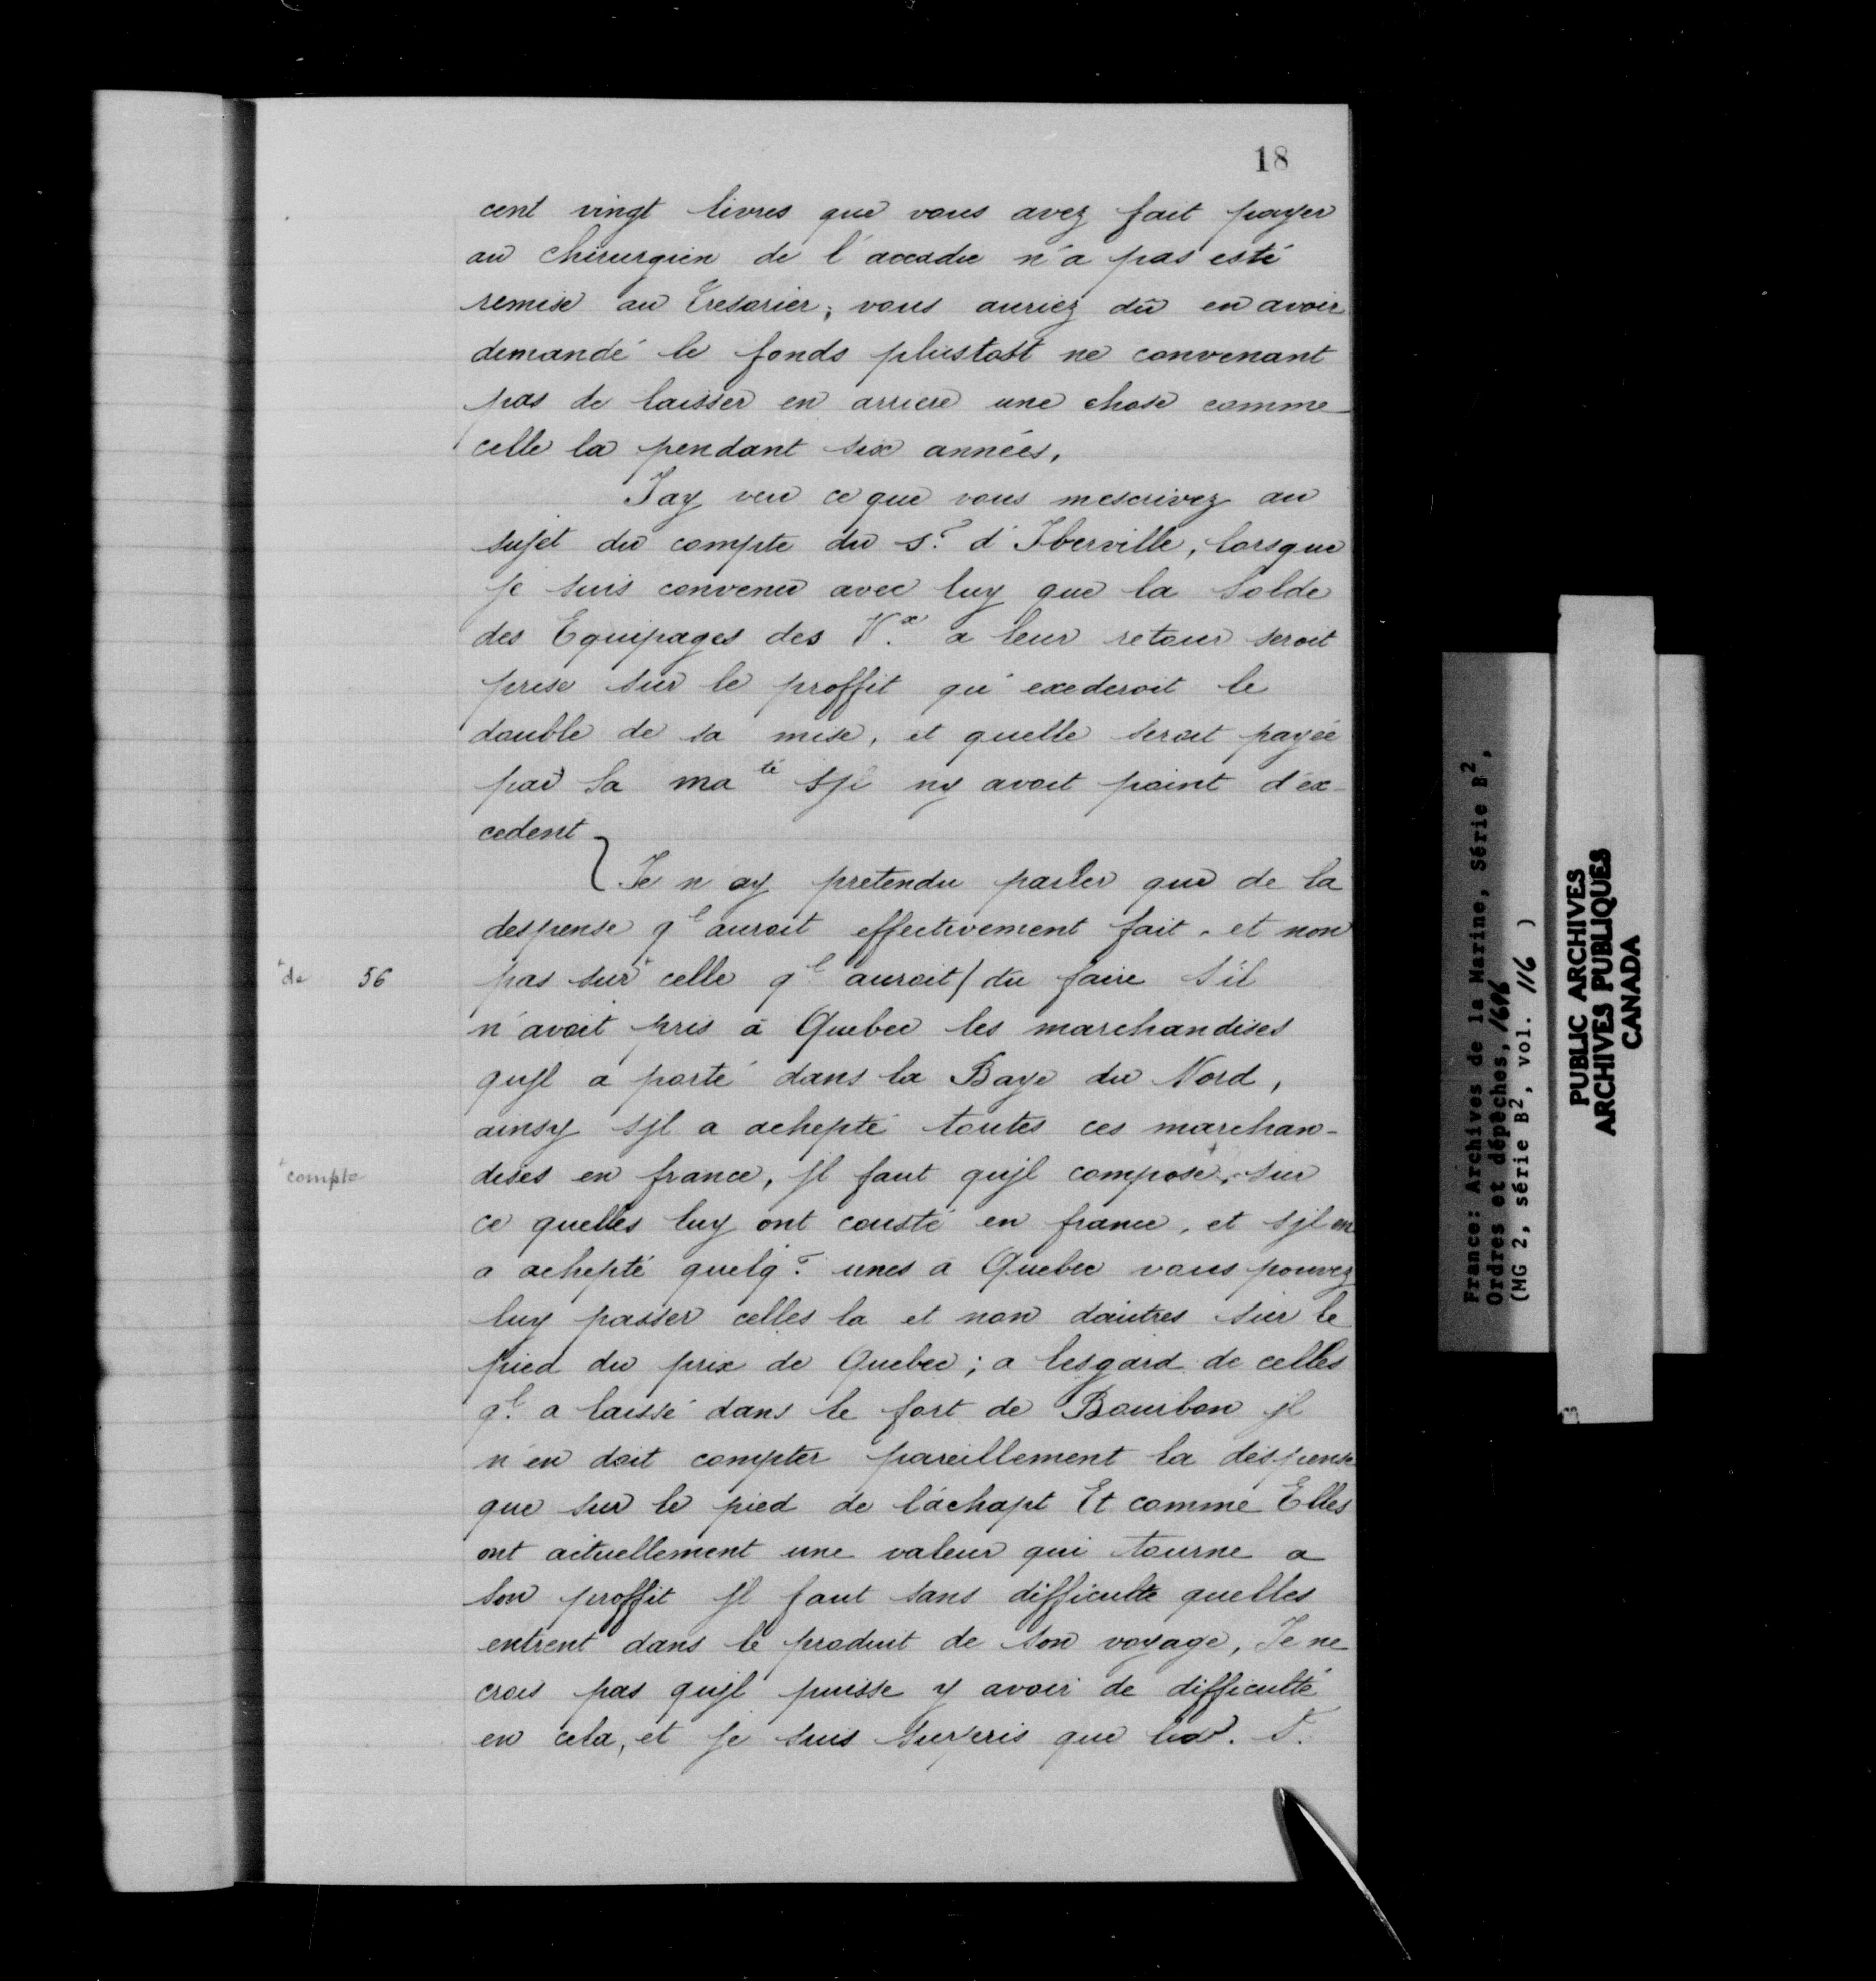 18
cent vingt livres que vous avez fait payer
au chirurgien de l'accadie n'a pas esté
remise au Tresorier; vous auriez dû en avoir
demandé le fonds plustost ne convenant
pas de laisser en arriere une chose comme
celle la pendant six années.
Jay veu ce que vous mescrivez au
sujet du compte du s.r d'Iberville, lorsque
je suis convenu avec luy que la solde
des Equipages des V.x a leur retour seroit
prise sur le proffit qui exederoit le
double de sa mise, et quelle seroit payée
par Sa ma té sjl ny avoit point d'ex-
cedent
Je n'ay pretendu parler que de la
despense q.l auroit effectivement fait. et non
+de 56 pas sur+ celle q.l auroit/du faire s'il
n'avoit pris à Quebec les marchandises
qujl a porté dans la Baye du Nord,
ainsy sjl a achepté toutes ces marchan-
dises en france, jl faut qujl compose+ sur
+compte
ce quelles luy ont cousté en france, et sjl en
a achepté quelq.s unes a Quebec vous pouvez
luy passer celles la et non dautres sur le
pied du prix de Quebec; a lesgard de celles
q.l a laissé dans le fort de Bourbon jl
n'en doit compter pareillement la despense
que sur le pied de l'achapt Et comme Elles
ont actuellement une valeur qui tourne a
son proffit jl faut sans difficulté quelles
entrent dans le produit de son voyage, Je ne
crois pas qujl puisse y avoir de difficulté
en cela, et je suis surpris que led. S.
France: Archives de la Marine, Série B2,
Ordres et dépêches, 1696
(MG 2, série B2, vol. 116 )
PUBLIC ARCHIVES
ARCHIVES PUBLIQUES
CANADA